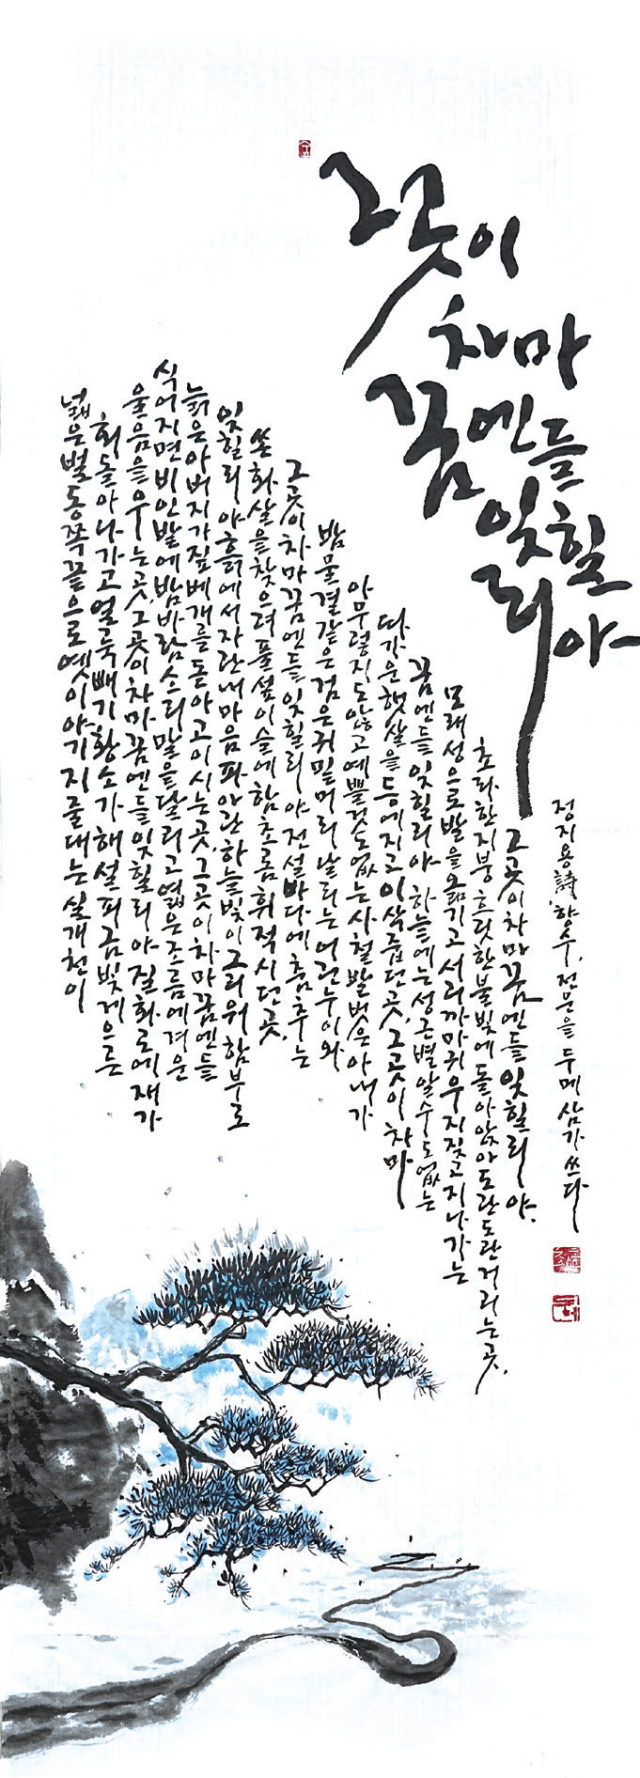 그곳이
차마
꿈엔들
잊힐
리야
넓은벌 동쪽끝으로 옛이야기 지줄대는 실개천이
회돌아 나가고 얼룩빼기 황소가 해설피 금빛 게으른
울음을 우는 곳, 그곳이 차마 꿈엔들 잊힐리야 질화로에 재가
식어지면 비인밭에 밤바람소리 말을 달리고 엷은 조름에 겨운
늙은 아버지가 짚베개를 돋아 고이시는 곳, 그곳이 차마 꿈엔들
잊힐리야 흙에서 자란 내마음 파아란 하늘빛이 그리워 함부로
쏜 화살을 찾으려 풀섶이슬에 함초롬 휘적시던 곳,
그곳이 차마 꿈엔들 잊힐리야 전설바다에 춤추는
밤물결같은 검은 귀밑머리 날리는 어린누이와
아무렇지도 않고 예쁠것도 없는 사철 발벗은 아내가
따가운 햇살을 등에지고 이삭줍던 곳, 그곳이 차마
꿈엔들 잊힐리야 하늘에는 성근별 알수도 없는
모래성으로 발을 옮기고 서리까마귀 우지짖고 지나가는
초라한 지붕 흐릿한 불빛에 돌아앉아 도란도란거리는 곳,
그곳이 차마 꿈엔들 잊힐리야.
정지용詩 '향수' 전문을 두메 삼가 쓰다